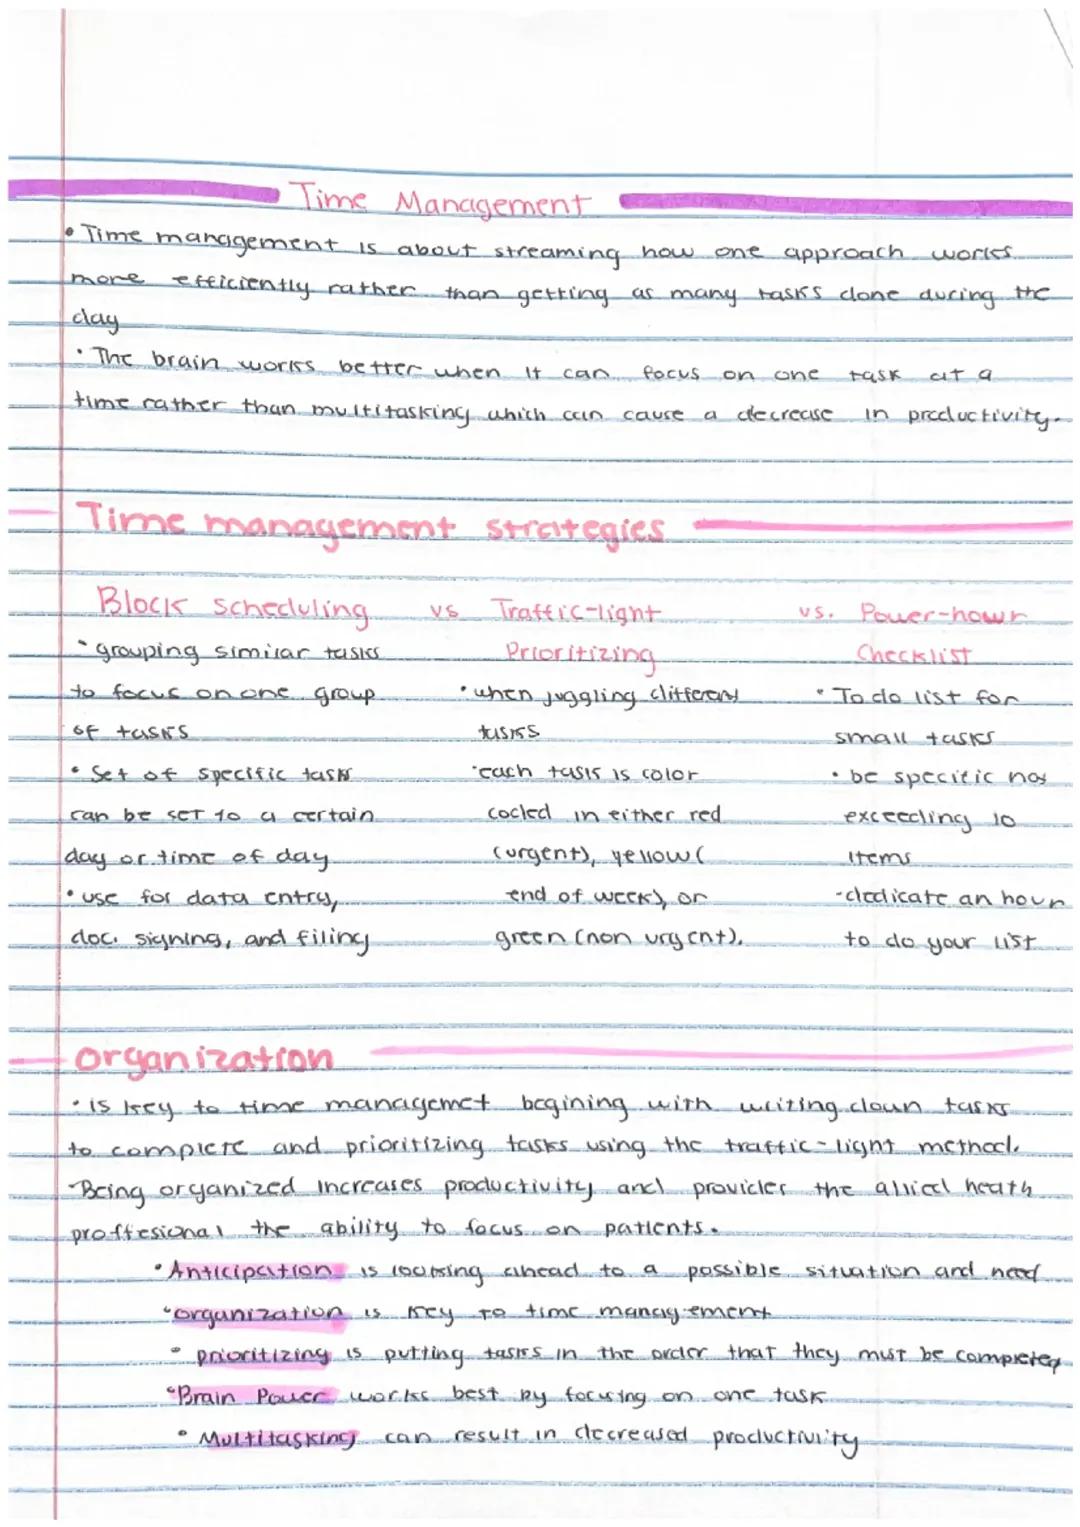 Time Management
• Time management is about streaming how one approach works
more efficiently rather than getting as many tasks done during the
day
• The brain works better when it can focus on one task at a
time rather than multitasking which can cause a decrease in productivity.
Time management strategies
Block scheduling vs Traffic-light vs. Power-hour
Prioritizing Checklist
• grouping similar tasks
to focus on one group
of tasks
• Set of specific tasks
can be set to a certain
day or time of day
• use for data entry,
doc. signing, and filing
• when juggling different
tasks
• each task is color
coded in either red
(urgent), yellow (
end of week), or
green (non urgent).
• To do list for
small tasks
• be specific not
exceeding 10
items
- dedicate an hour
to do your list
organization
• is key to time managemet begining with writing down tasks
to complete and prioritizing tasks using the traffic-light method.
• Being organized increases productivity and provides the allied heath
proffesional the ability to focus on patients.
• Anticipation is looking ahead to a possible situation and need
• organization is key to time management
• prioritizing is putting tasks in the order that they must be completed
• Brain Power works best by focusing on one task
• Multitasking can result in decreased productivity